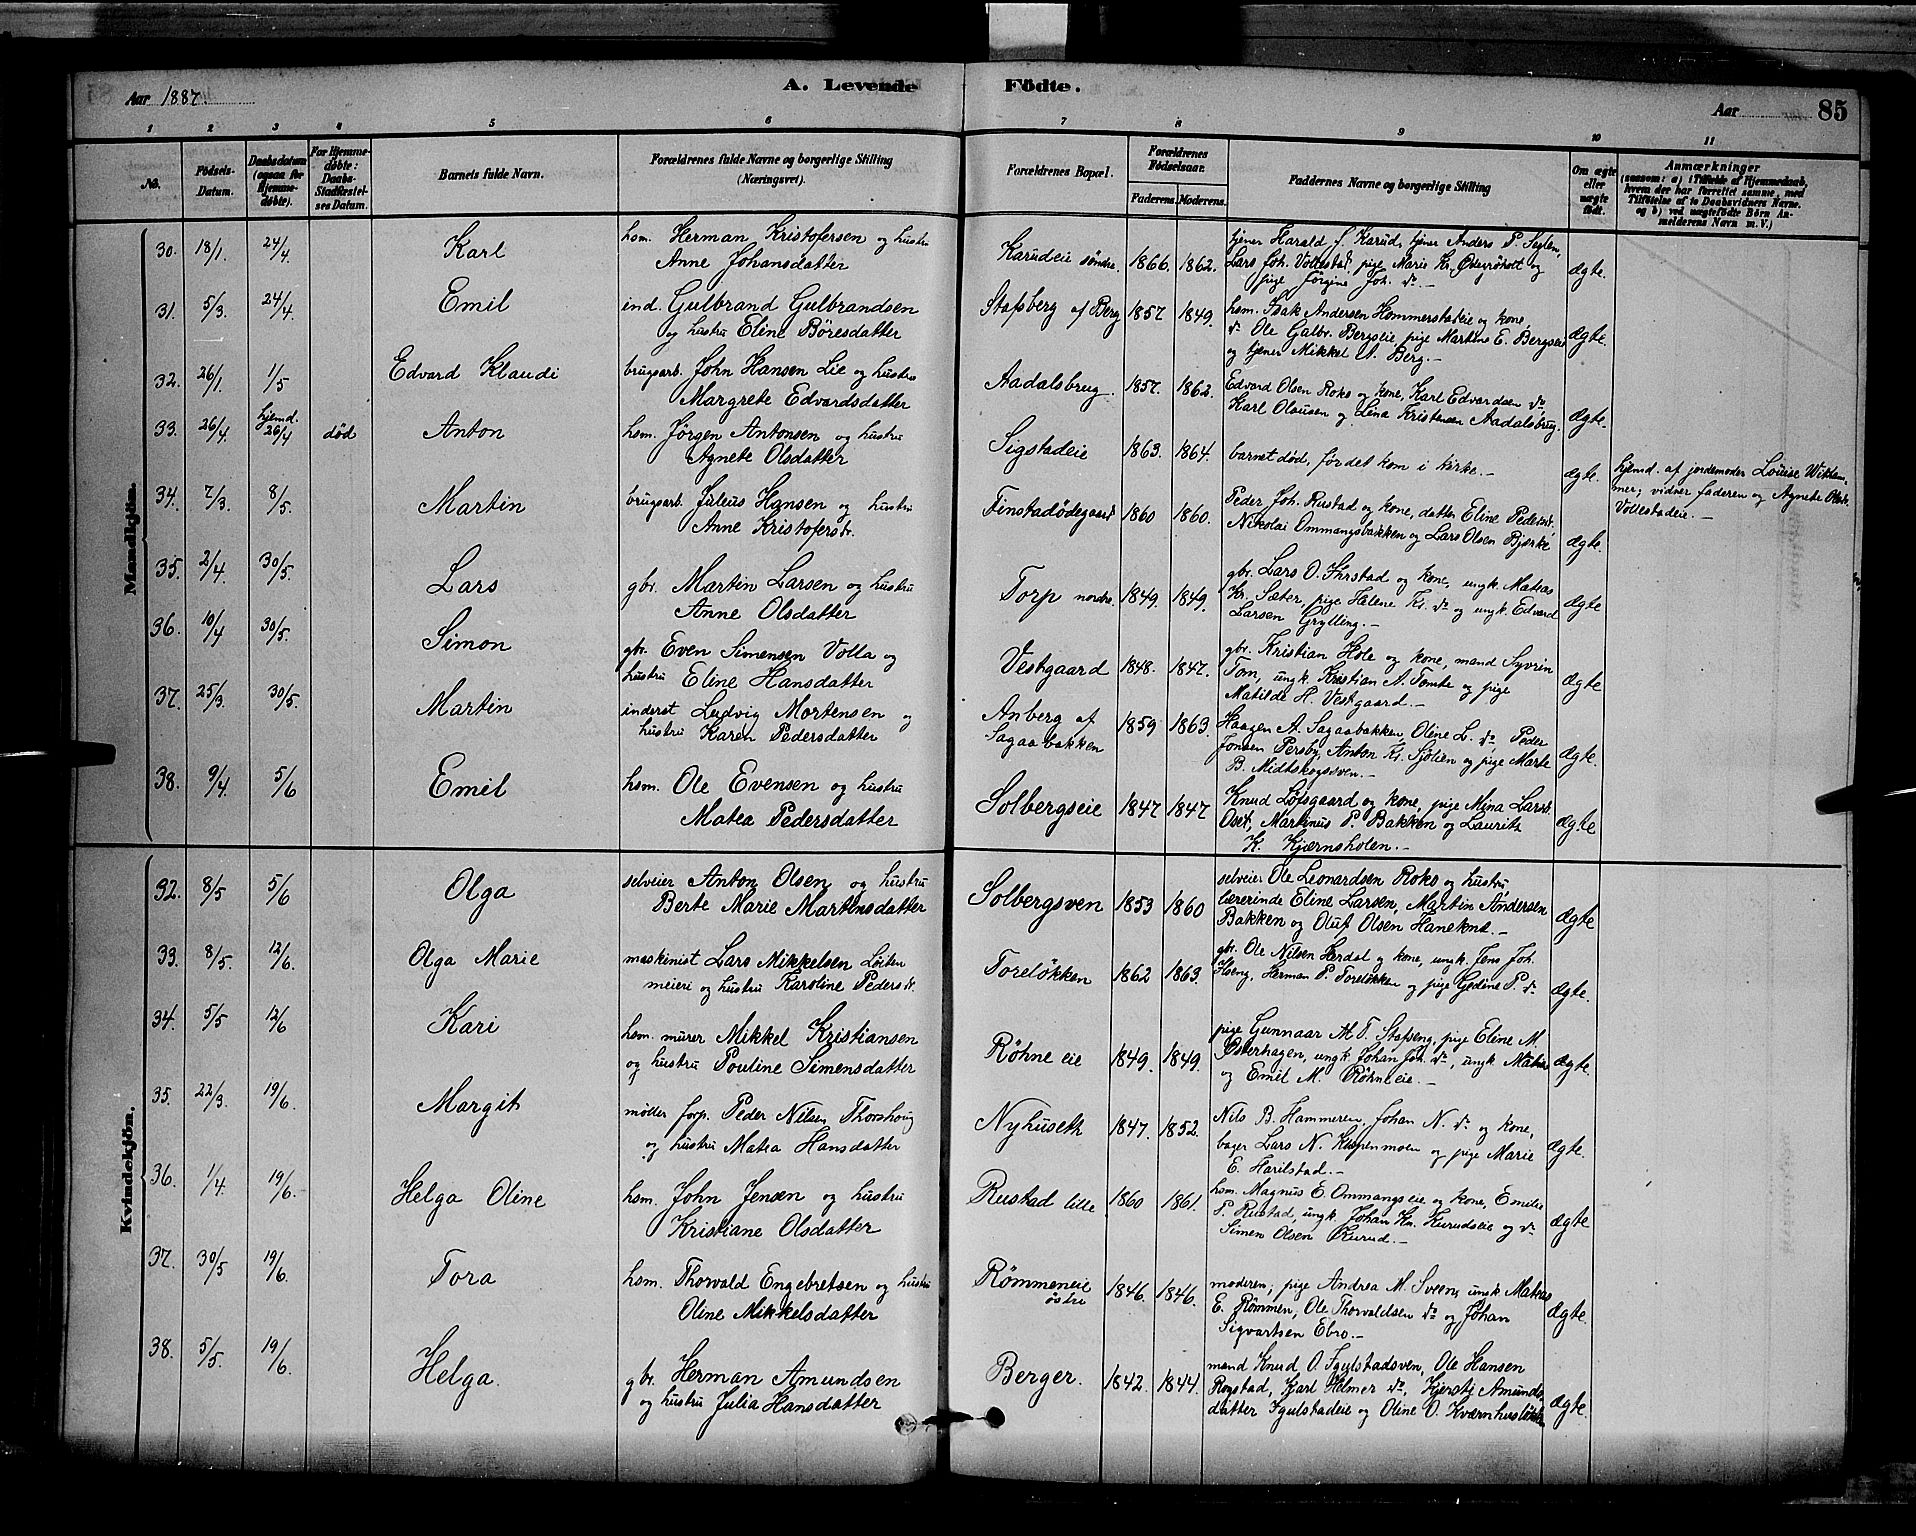 Aar 1887.
A. Levende Födte.
Aar 85
1 2 3 4 5 6 7 8 9 10 11
No.
Fødsels-Datum.
Daabsdatum (ogsaa for Hjemme-døbte).
For Hjemme-døbte: Daabs-Stadfæstel-ses Datum.
Barnets fulde Navn.
Forældrenes fulde Navne og borgerlige Stilling (Næringsvei).
Forældrenes Bopæl.
Forældrenes Fødselsaar.
Faderens. Moderens.
Faddernes Navne og borgerlige Stilling
Om ægte eller uægte født.
Anmærkninger
(saasom: a) i Tilfælde af Hjemmedaab,
hvem der har forrettet samme, med
Tilføielse af to Daabsvidners Navne.
og b) ved uægtefødte Børn An-
melderens Navn m. V.)
Mandkjön.
30. 18/1. 24/4. Karl
hsm. Herman Kristofersen og hustru
Anne Johansdatter
Karudeie søndre. 1866. 1862.
tjener Harald J. Karud, tjener Anders P. Seglen,
Lars Joh. Vollestad, pige Marie Kr. og
pige Jørgine Joh. do. -
Ægte.
31. 5/3. 24/4. Emil
ind. Gulbrand Gulbrandsen
og hustru Eline Böresdatter
Stafsberg af Berg 1857 1849.
hsm. Isak Andersen Hommerstadeie og kone
do. Ole Gulbr. Bergseie, pige Martine E. Bergseie
og tjener Mikkel A. Berg. -
Ægte.
32. 26/1. 1/5 Edvard Klaudi
brugsarb. John Hansen Lie og hustru
Margrete Edvardsdatter
Aadalsbrug. 1857. 1862.
Edvard Olsen Roko og kone, Karl Edvardsen do,
Karl Olausen og Lina Kristensen Aadalsbrug.
Ægte.
33. 26/4. hjemd. 26/4 død Anton
hsm. Jörgen Antonsen og hustru
Agnete Olsdatter
Sigstadeie 1863. 1864.
barnet död,för det kom i kirke. -
ægte.
hjemd. af jordemoder Louise Witham-
mer; vidner faderen og Agnete Olsdr.
Vollestadeie. -
34. 7/3. 8/5. Martin
brugsarb. Julius Hansen og hustru
Anne Kristofersdr.
Finstadødegaard 1860 1860.
Peder Joh. Rustad og kone, datter Eline Pedersdr.
Nikolai Ommangsbakken og Lars Olsen Bjerke
Ægte.
35. 2/4. 30/5. Lars
gbr. Martin Larsen og hustru
Anne Olsdatter
Torp nordre. 1849. 1849.
gbr. Lars O. og kone, ungk. Mathias
Kr. Sæter, pige Helene Kr. do og ungk. Edvard
Larsen Grylling. -
Ægte
36. 10/4 30/5. Simon
gbr. Even Simensen Volla og
hustru Eline Hansdatter
Vestgaard 1848. 1847.
gbr. Kristian Hole og kone, mand Syvrin
Tom, ungk. Kristian A. Tomte og pige
Matilde H. Vestgaard. -
Ægte
37. 25/3. 30/5. Martin
inderst Ludvig Mortensen og
hustru Karen Pedersdatter
Anberg af
Sagaabakken 1859 1863.
Haagen A. Sagaabakken, Oline L. do, Peder
Jonsen Persby, Anton Kr. Sjölien og pige Marte
B. Midtskogsven. -
Ægte.
38. 9/4 5/6 Emil
hsm. Ole Evensen og hustru
Matea Pedersdatter
Solbergseie 1847 1847
Knud Löfsgaard og kone, pige Mina Larsdr.
Oset, Martinus P. Bakken og Lauritz
K. Kjærnsholen. -
Ægte
Kvindekjön.
32. 8/5 5/6 Olga
selveier Anton Olsen og hustru
Berte Marie Martinsdatter
Solbergsven 1853 1860
selveier Ole Leonardsen Roko og hustru,
lærerinde Eline Larsen, Martin Andersen
Bakken og Oluf Olsen Haneknæ. -
Ægte
33. 8/5. 12/6. Olga Marie
maskinist Lars Mikkelsen Löiten
meieri og hustru Karoline Pedersdr.
Torelökken 1862 1863.
gbr. Ole Nilsen Herdal og kone, ungk. Jens Joh.
Hseng, Herman P. Torelökken og pige Gjedine P. do
Ægte.
34. 5/5 12/6 Kari
hsm. murer Mikkel Kristiansen
og hustru Pouline Simensdatter
Röhne eie 1849. 1849.
pige Gunnaar M. T. Stafseng, pige Eline M.
Østerhagen, ungk. Johan Joh. do, ungk. Mathias
og Emil M. Röhneeie. -
Ægte.
35. 22/3. 19/6. Margit
møller forp. Peder Nilsen Thorshoug
og hustru Matea Hansdatter
Nyhuseth 1847. 1852.
Nils B. Hammeren, Johan N. do og kone,
bager Lars N. Kuspenmoen og pige Marie
E. Harilstad. -
Ægte.
36. 1/4 19/6. Helga Oline
hsm. John Jensen og hustru
Kristiane Olsdatter
Rustad lille 1860 1861.
hsm. Magnus E. Ommangseie og kone, Emilie
P. Rustad, ungk. Johan Kr. Kurudseie og do
Simen Olsen Kurud. -
Ægte
37. 30/5 19/6. Tora
hsm. Thorvald Engebretsen og hustru
Oline Mikkelsdatter
Römmeneie
östre 1846. 1846.
moderen; pige Andrea M. Sveen, ungk. Mathias
E. Römmen, Ole Thorvaldsen do og Johan
Sigvartsen Ebro. -
Ægte.
38. 5/5. 19/6 Helga.
gbr. Herman Amundsen
og hustru Julia Hansdatter
Berger. 1842. 1844.
mand Knud O. Igulstadsven, Ole Hansen
Rogstad, Karl Helmer do, Kjersti Amunds-
datter Igulstadeie og Oline O. Kværnhuslökken
Ægte.